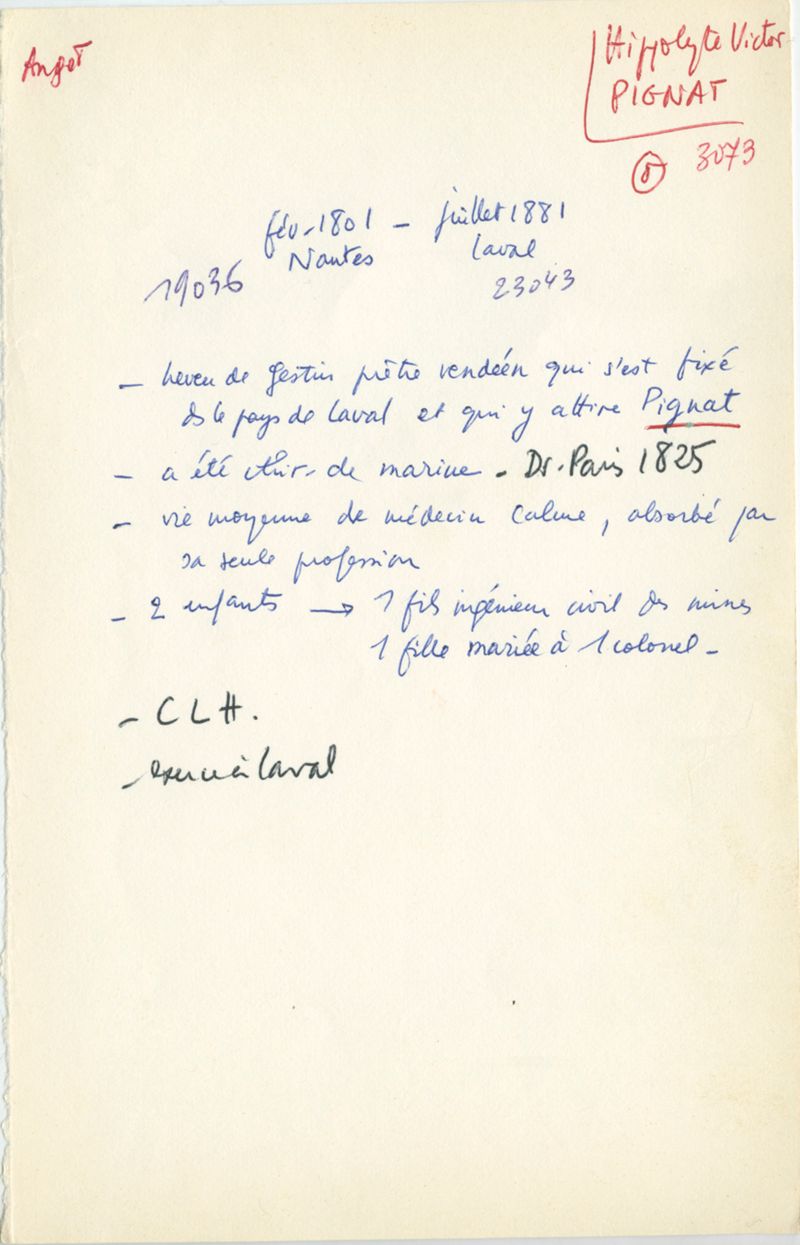 Angot
Hippolyte Victor
PIGNAT
3073
fév. 1801 - juillet 1881
Nantes Laval
19036 23043
- neveu de Gestin prêtre vendéen qui s'est fixé
ds le pays de Laval et qui y attire Pignat
- a été chir. de marine - Dr. Paris 1825
- vie moyenne de médecin calme, absorbé par
sa seule profession
- 2 enfants → 1 fils ingénieur civil des mines
1 fille mariée à 1 colonel -
- C L H.
- exerce à Laval